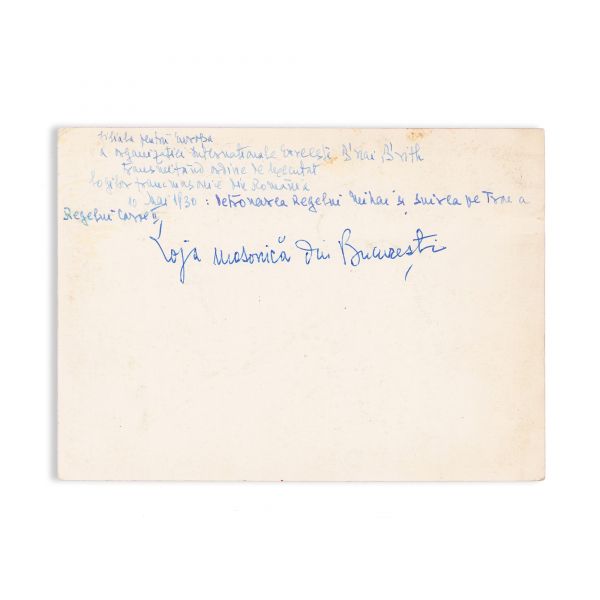 filiala pentru Europa
a organizatiei internationale evreesti B'nai B'rith
transmitând ordine de executat
lojilor francmasonice din România
10 Mai 1930 : Detronarea Regelui Mihai și suirea pe Tron a
Regelui Carol II
Loja masonică din București